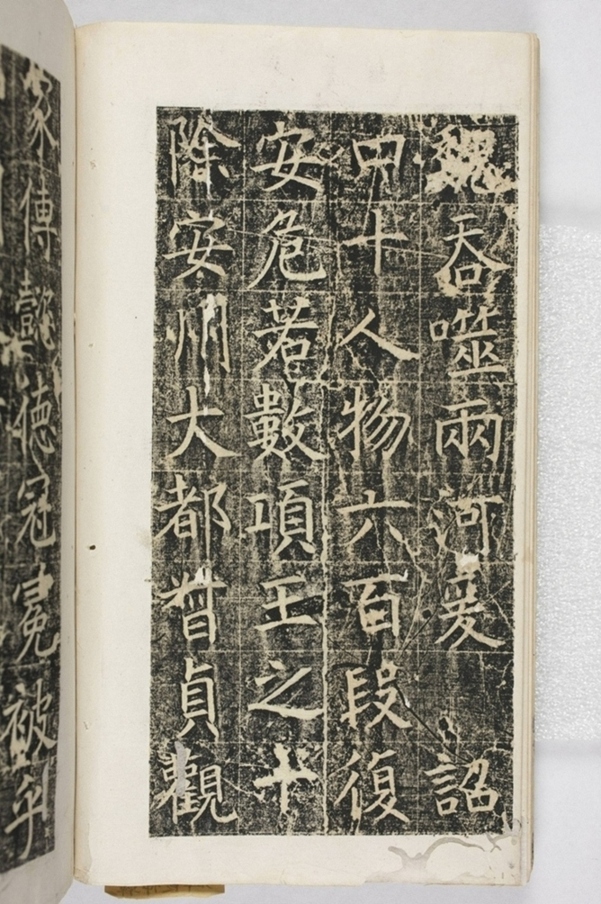 魏吞噬兩河爰詔
十人物六百段復
安危若數項王之十
除安州大都督貞觀
家傳懿德冠冕被乎